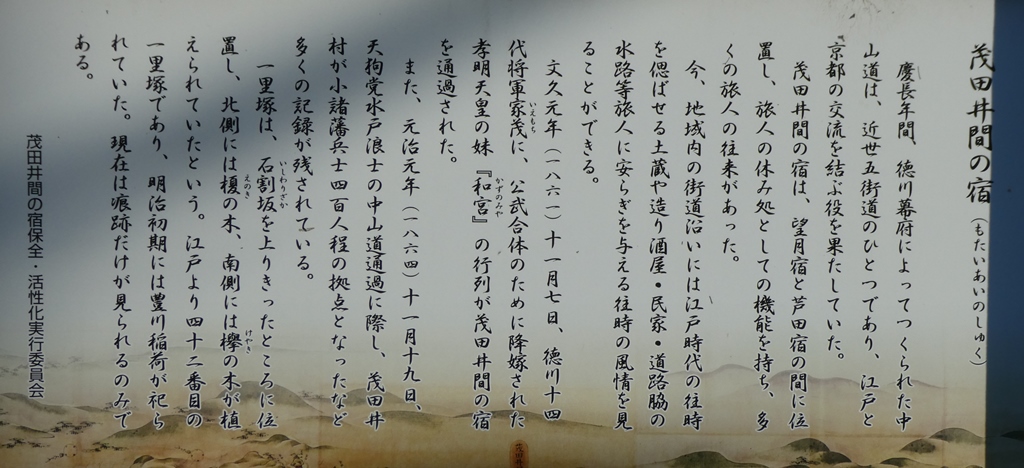 茂田井間の宿（もたいあいのしゅく）
慶長年間、徳川幕府によってつくられた中
山道は、近世五街道のひとつであり、江戸と
京都の交流を結ぶ役を果たしていた。
茂田井間の宿は、望月宿と芦田宿の間に位
置し、旅人の休み処としての機能を持ち、多
くの旅人の往来があった。
今、地域内の街道沿いには江戸時代の往時
を偲ばせる土蔵や造り酒屋・民家・道路脇の
水路等旅人に安らぎを与える往時の風情を見
ることができる。
文久元年（一八六一）十一月七日、徳川十四
代将軍家茂に、公武合体のために降嫁された
いえもち
孝明天皇の妹『和宮』の行列が茂田井間の宿
かずのみや
を通過された。
また、元治元年（一八六四）十一月十九日、
天狗党水戸浪士の中山道通過に際し、茂田井
村が小諸藩兵士四百人程の拠点となったなど
多くの記録が残されている。
一里塚は、石割坂を上りきったところに位
いしわりざか
置し、北側には榎の木、南側には欅の木が植
えのき
けやき
えられていたという。江戸より四十二番目の
一里塚であり、明治初期には豊川稲荷が祀ら
れていた。現在は痕跡だけが見られるのみで
ある。
茂田井間の宿保全・活性化実行委員会